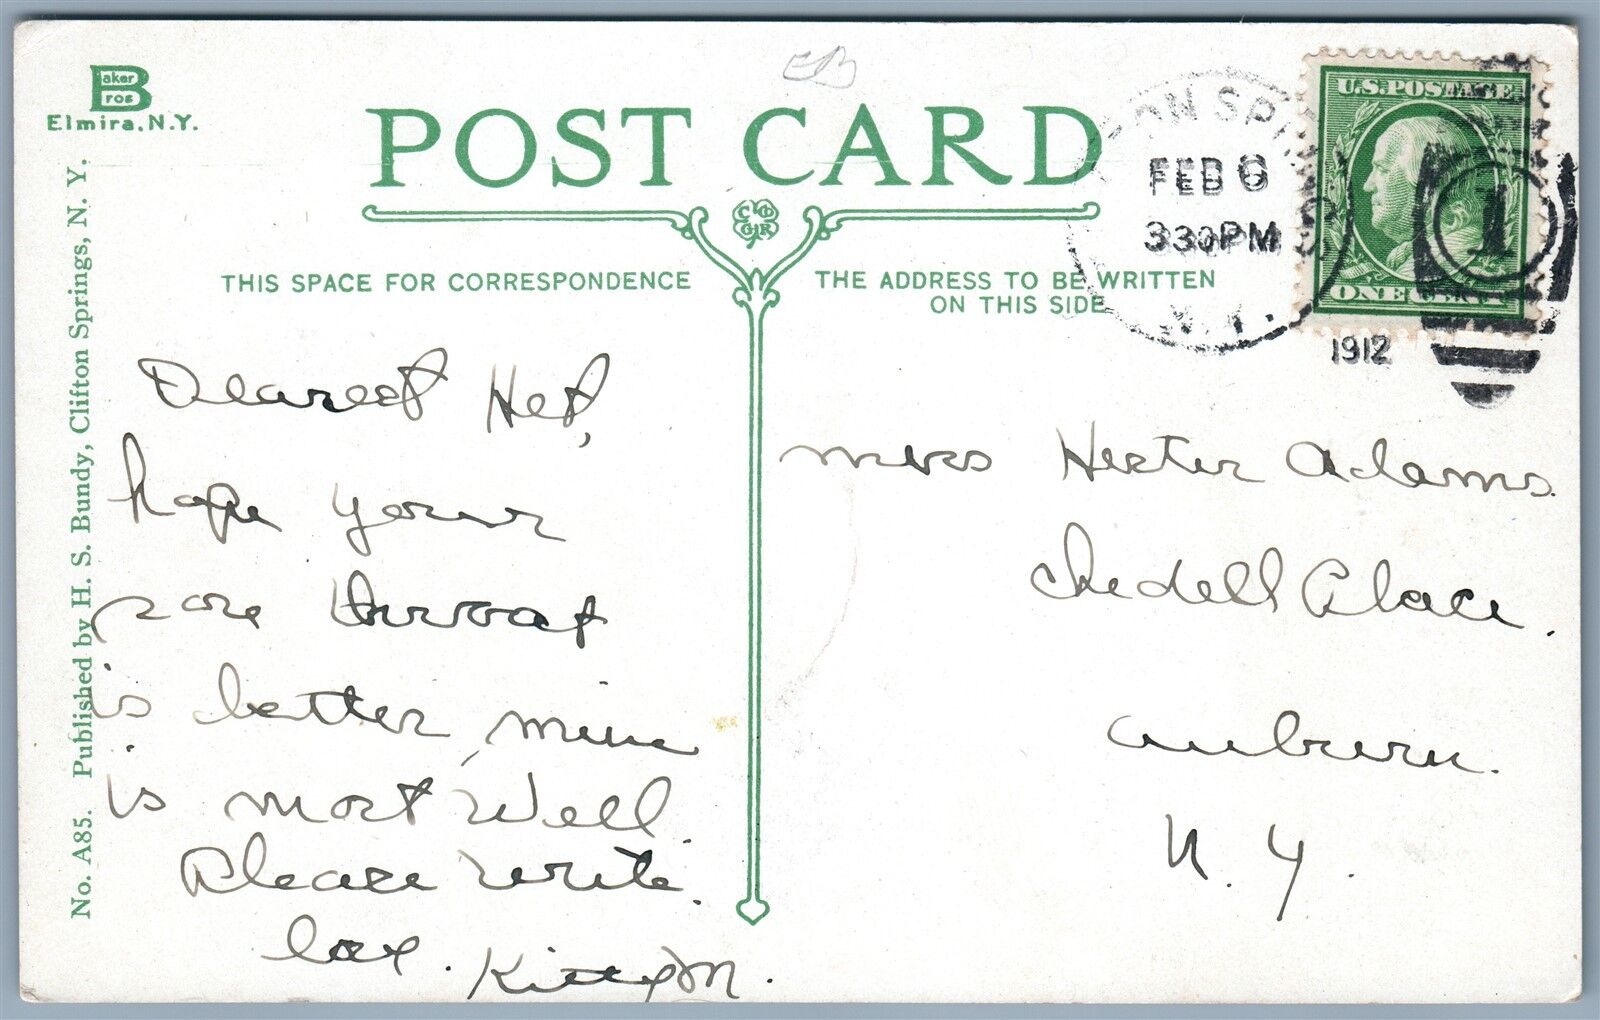 Baker
Bros
Elmira, N.Y.
POST CARD
THIS SPACE FOR CORRESPONDENCE
THE ADDRESS TO BE WRITTEN
ON THIS SIDE
No. A85. Published by H. S. Bundy, Clifton Springs, N. Y.
TON SPRINGS
FEB 6
330PM
N.Y.
1912
U.S.POSTAGE
ONE CENT
1
Dearest Het,
hope your
sore throat
is better, mine
is most well.
Please write.
Kitty M.
Mrs Hester Adams.
Chedell Place.
Auburn.
N. Y.